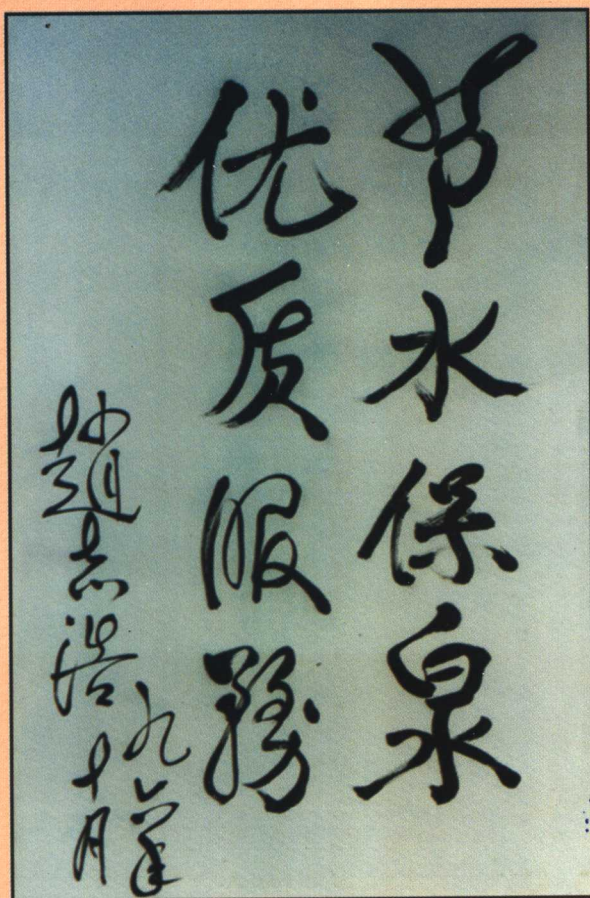 节水保泉
优质服務
趙志浩
九六年
十月